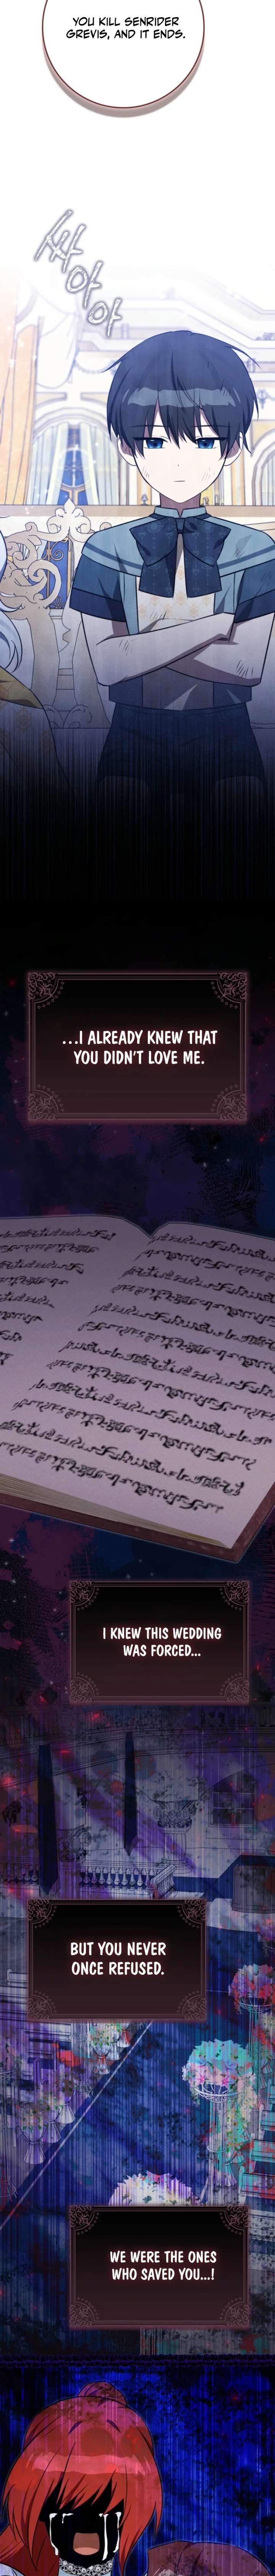 YOU KILL SENRIDER
GREVIS, AND IT ENDS.
쏴아아
...I ALREADY KNEW THAT
YOU DIDN'T LOVE ME.
I KNEW THIS WEDDING
WAS FORCED...
BUT YOU NEVER
ONCE REFUSED.
WE WERE THE ONES
WHO SAVED YOU...!